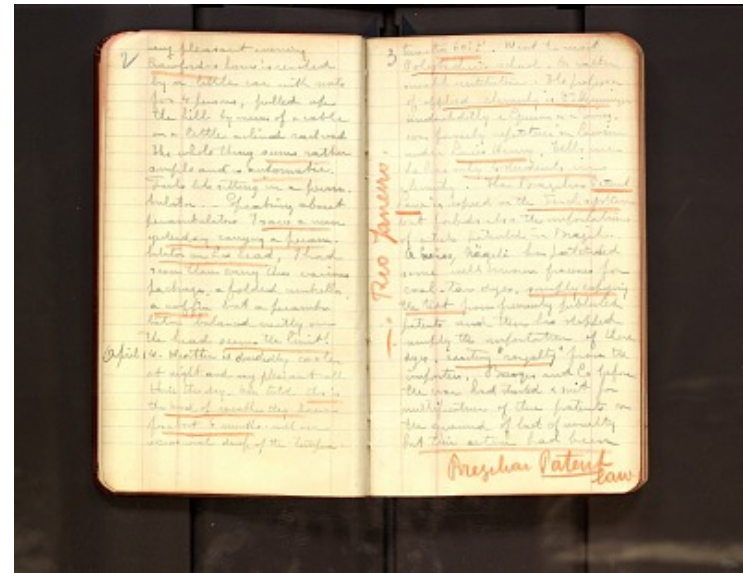 2
very pleasant evening
house is reached
by a little car with seats
for 4 persons, pulled up
the hill by means of a cable
on a little inclined railroad
The whole thing seems rather
simple and is automatic.
Feels like sitting in a peram-
bulator. — Speaking about
perambulators I saw a man
yesterday carrying a peram-
bulator on his head, I had
seen them carry their various
packages, a folded umbrella
a coffin but a perambu-
lator balanced neatly on
the head seems the limit!
April 14. Weather is decidedly cooler
at night and very pleasant all
thru the day. Am told this is
the end of
for next 6 months with an
occasional drop of the
3
Went to
Polytechnic school. A rather
small institution. The professor
of applied chemistry is
undoubtedly a German
was formerly
under Louis Henry. Tells me
he has only 4 students in
chemistry. The Brazilian Patent
Law is copied on the French system
but forbids also the importation
of articles patented in Brazil.
A Nägeli has patented
some well known processes for
coal-tar dyes, simply copying
the text from formerly published
patents and then has stopped
simply the importation of these
dyes, exacting "royalty" from the
importers. and Co before
the war had started a suit for
nullification of these patents on
the ground of lack of novelty
but their action had been
Rio Janeiro.
Brazilian Patent
law